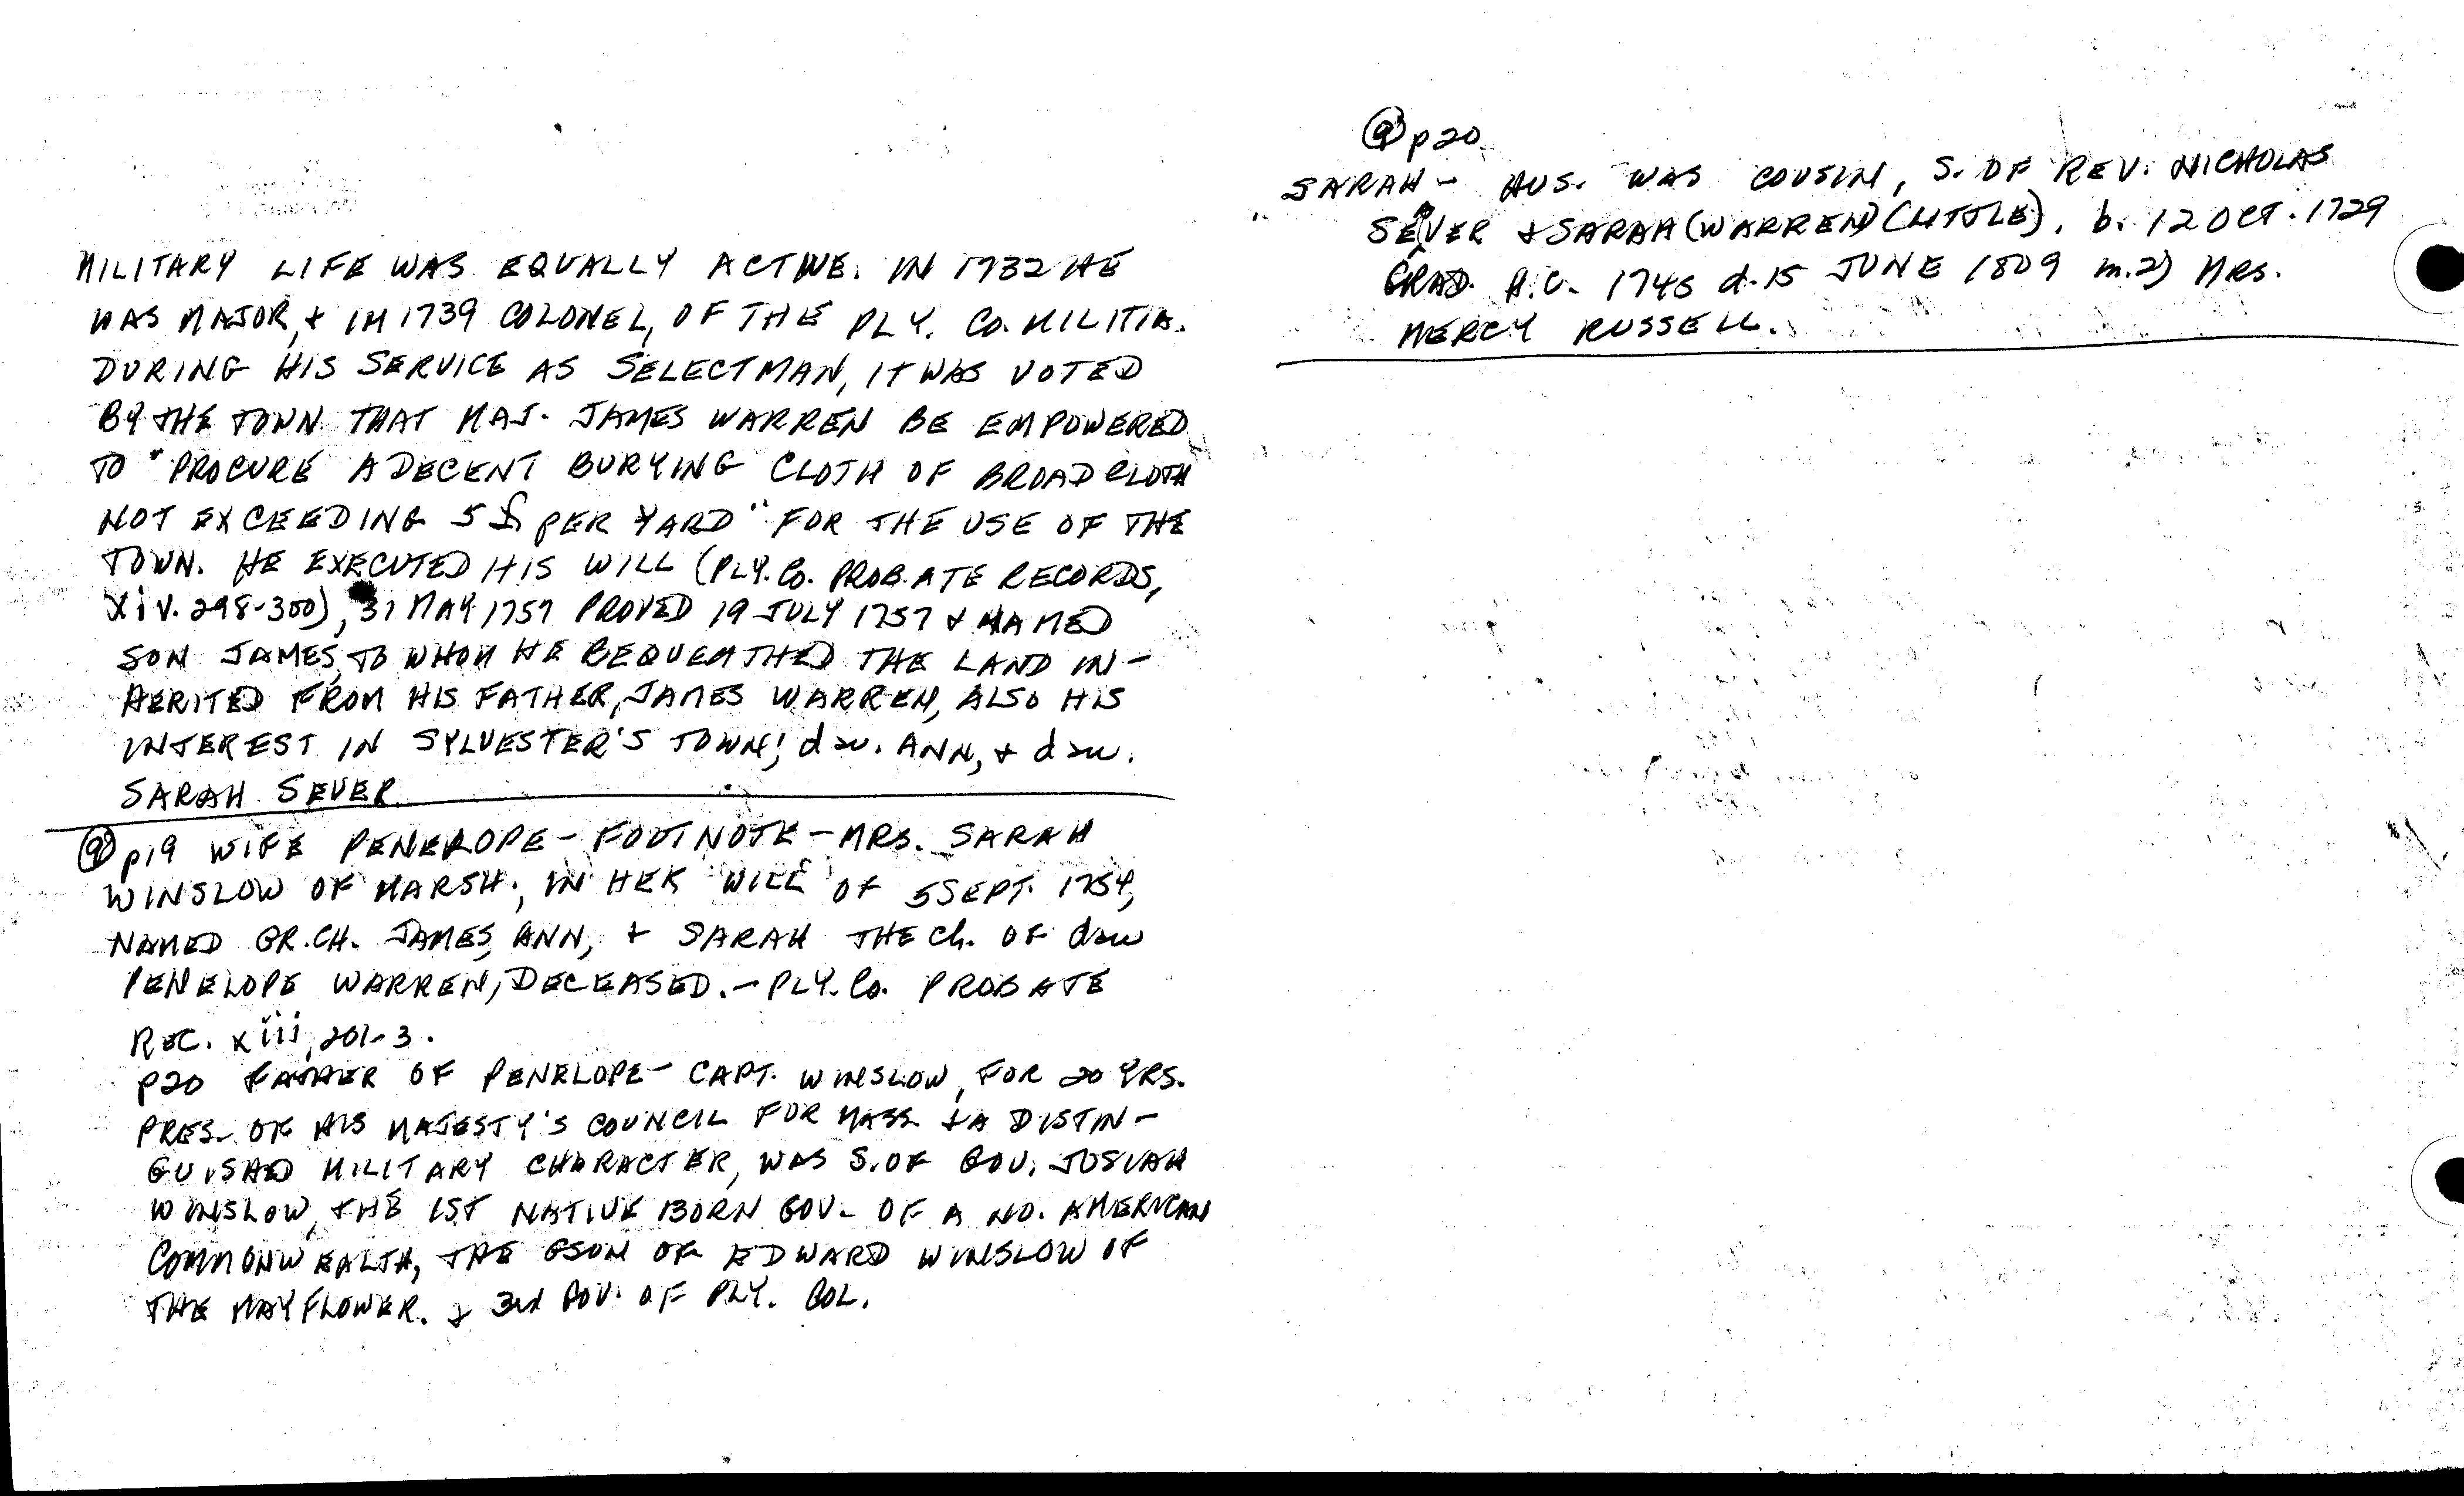 MILITARY LIFE WAS EQUALLY ACTIVE. IN 1732 HE
WAS MAJOR, & IN 1739 COLONEL, OF THE PLY. CO. MILITIA.
DURING HIS SERVICE AS SELECTMAN, IT WAS VOTED
BY THE TOWN THAT MAJ. JAMES WARREN BE EMPOWERED
TO "PROCURE A DECENT BURYING CLOTH OF BROAD CLOTH
NOT EXCEEDING 5 £ PER YARD" FOR THE USE OF THE
TOWN. HE EXECUTED HIS WILL (PLY. Co. PROBATE RECORDS,
XiV. 298-300), 31 MAY 1757 PROVED 19 JULY 1757 & NAMED
SON JAMES, TO WHOM HE BEQUEATHED THE LAND IN-
HERITED FROM HIS FATHER, JAMES WARREN, ALSO HIS
INTEREST IN SYLVESTER'S TOWN; dau. ANN, & dau.
SARAH SEVER.
(9) p19 WIFE PENELOPE - FOOTNOTE - MRS. SARAH
WINSLOW OF MARSH., IN HER WILL OF 5 SEPT. 1754,
NAMED GR. CH. JAMES, ANN, & SARAH THE Ch. OF dau
PENELOPE WARREN, DECEASED. - PLY. Co. PROBATE
REC. xiii, 201-3.
p20 FATHER OF PENELOPE - CAPT. WINSLOW, FOR 20 YRS.
PRES. OF HIS MAJESTY'S COUNCIL FOR MASS & A DISTIN-
GUISHED MILITARY CHARACTER, WAS S. OF GOV. JOSIAH
WINSLOW, THE 1ST NATIVE BORN GOV. OF A NO. AMERICAN
COMMONWEALTH, THE GSON OF EDWARD WINSLOW OF
THE MAYFLOWER. & 3rd GOV. OF PLY. COL.
(9) p20
SARAH - HUS. WAS COUSIN, S. OF REV. NICHOLAS
SEVER & SARAH (WARREN) (LITTLE), b. 12 OCT. 1729
GRAD. H.C. 1745 d. 15 JUNE 1809 m. 2) MRS.
MERCY RUSSELL.